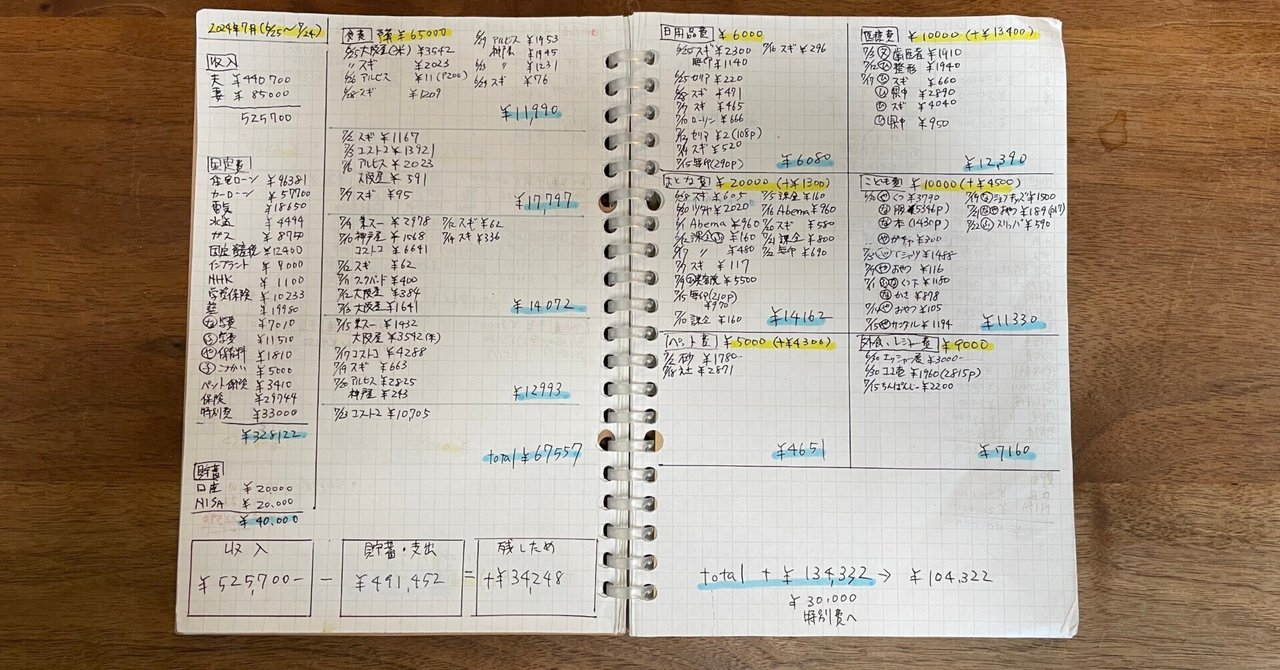 2024年7月(6/25〜7/24)
収入
夫 ¥440700
妻 ¥85000
525700
固定費
住宅ローン ¥96381
カーローン ¥57700
電気 ¥18650
水道 ¥4494
ガス ¥8750
固定資産税 ¥12400
インプラント ¥9000
NHK ¥1100
学資保険 ¥10233
¥19980
学費 ¥7010
学費 ¥11510
保育料 ¥1810
こづかい ¥5000
ペット保険 ¥3410
保険 ¥29744
特別費 ¥33000
¥328122
貯蓄
口座 ¥20000
NISA ¥20.000
¥40.000
食費 予算 ¥65000
6/25 大阪屋(米) ¥3542
〃 スギ ¥2023
6/26 アルビス ¥11(P200)
6/28 スギ ¥1209
6/29 アルビス ¥1953
神戸屋 ¥1945
〃 ¥1231
6/29 スギ ¥76
¥11,990
7/2 スギ ¥1167
7/3 コストコ ¥13921
7/6 アルビス ¥2023
大阪屋 ¥591
7/7 スギ ¥95
¥17,797
7/9 業スー ¥2978
7/10 神戸屋 ¥1568
コストコ ¥6641
7/12 スギ ¥62
7/11 ¥400
7/12 大阪屋 ¥384
7/13 大阪屋 ¥1641
7/12 スギ ¥62
7/14 スギ ¥336
¥14072
7/15 業スー ¥1432
大阪屋 ¥3542(米)
7/17 コストコ ¥4288
7/19 スギ ¥663
7/20 アルビス ¥2825
神戸屋 ¥243
¥12993
7/23 コストコ ¥10,705
total ¥67557
収入
¥525,700-
-
貯蓄・支出
¥491,452
=
残しため
+¥34248
日用品費 ¥6000
6/25 スギ ¥2300
無印 ¥1140
6/25 セリア ¥220
6/28 スギ ¥471
7/7 スギ ¥465
7/10 ローソン ¥666
7/12 セリア ¥2(108p)
7/14 スギ ¥520
7/15 無印(290p)
7/16 スギ ¥296
¥6080
医療費 ¥10000(+¥13400)
7/3 歯医者 ¥1910
7/12 整形 ¥1940
7/17 スギ ¥660
県中 ¥2890
スギ ¥4040
県中 ¥950
¥12,390
おとな費 ¥20000(+¥1300)
6/28 スギ ¥605
6/30 ツタヤ ¥2020
7/1 Abema ¥960
7/2 課金 ¥160
7/7 〃 ¥480
7/7 スギ ¥117
7/9 美容院 ¥5500
7/15 無印(210p)
¥970
7/10 課金 ¥160
7/15 課金 ¥160
7/16 Abema ¥960
7/22 スギ ¥580
7/22 課金 ¥800
7/22 無印 ¥690
¥14162
こども費 ¥10000(+¥4500)
6/26 くつ ¥3790
服 (5396p)
本 (1430p)
ガチャ ¥200
Tシャツ ¥1488
おやつ ¥116
くつ下 ¥1180
かさ ¥878
7/14 おやつ ¥105
7/15 サンダル ¥1194
7/19 ¥1500
7/21 おやつ ¥189
7/22 スリッパ ¥590
¥11330
ペット費 ¥5000(+¥4306)
7/2 砂 ¥1780-
7/18 ¥2871
¥4651
外食、レジャー費 ¥9000
6/30 レジャー費 ¥3000-
6/30 ココ壱 ¥1960(2815p)
7/15 ちんぱんじー ¥2200
¥7160
total + ¥134,332 → ¥104,322
¥30,000
特別費へ